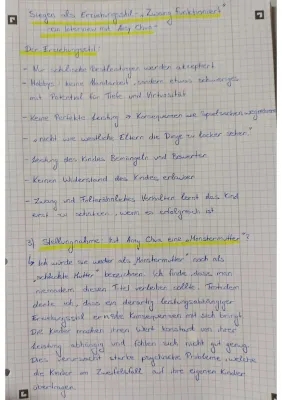 Siegen als Erziehungsstil - „Zwang funktioniert"
- ein Interview mit Amy Chua -
Der Erziehungsstil:
- Nur schulische Bestleistungen werden akzeptiert
- Hobbys: keine Handarbeit, sondern etwas schweres
mit Potential für Tiefe und Virtuosität
- Keine Perfekte Leistung → Konsequenzen wie Spielsachen wegnehmen
- „nicht wie westliche Eltern die Dinge zu locker sehen"
- Leistung des Kindes Bemängeln und Bewerten
- Keinen Widerstand des Kindes erlauben
- Zwang und Folterähnliches Verhalten lernt das Kind
erst zu schätzen, wenn es erfolgreich ist
3) Stellungnahme: Ist Amy Chua eine „Monstermutter"?
↳ Ich würde sie weder als „Monstermutter" noch als
„schlechte Mutter" bezeichnen. Ich finde, dass man
niemandem diesen Titel verleihen sollte. Trotzdem
denke ich, dass ein derartig leistungsabhängiger
Erziehungsstil ernste Konsequenzen mit sich bringt.
Die Kinder machen ihren Wert konstant von ihrer
Leistung abhängig und fühlen sich nicht gut genug.
Dies verursacht starke psychische Probleme, welche
die Kinder im Zweifelsfall auf ihre eigenen Kinder
übertragen.